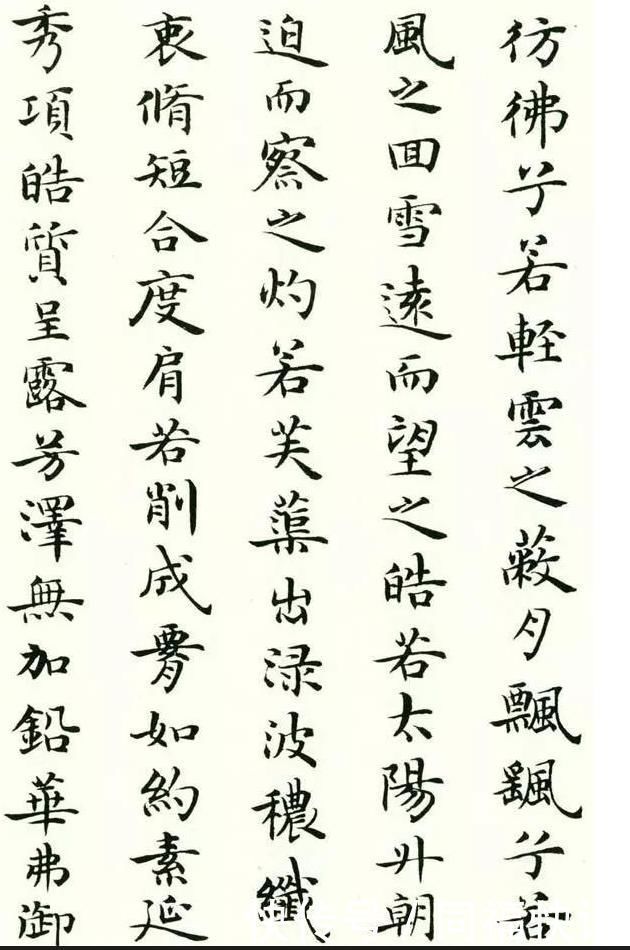 彷彿兮若輕雲之蔽月飄飖兮若
風之回雪遠而望之皓若太陽升朝
迫而察之灼若芙蕖出淥波穠纖
衷脩短合度肩若削成腰如約素延
秀項皓質呈露芳澤無加鉛華弗御